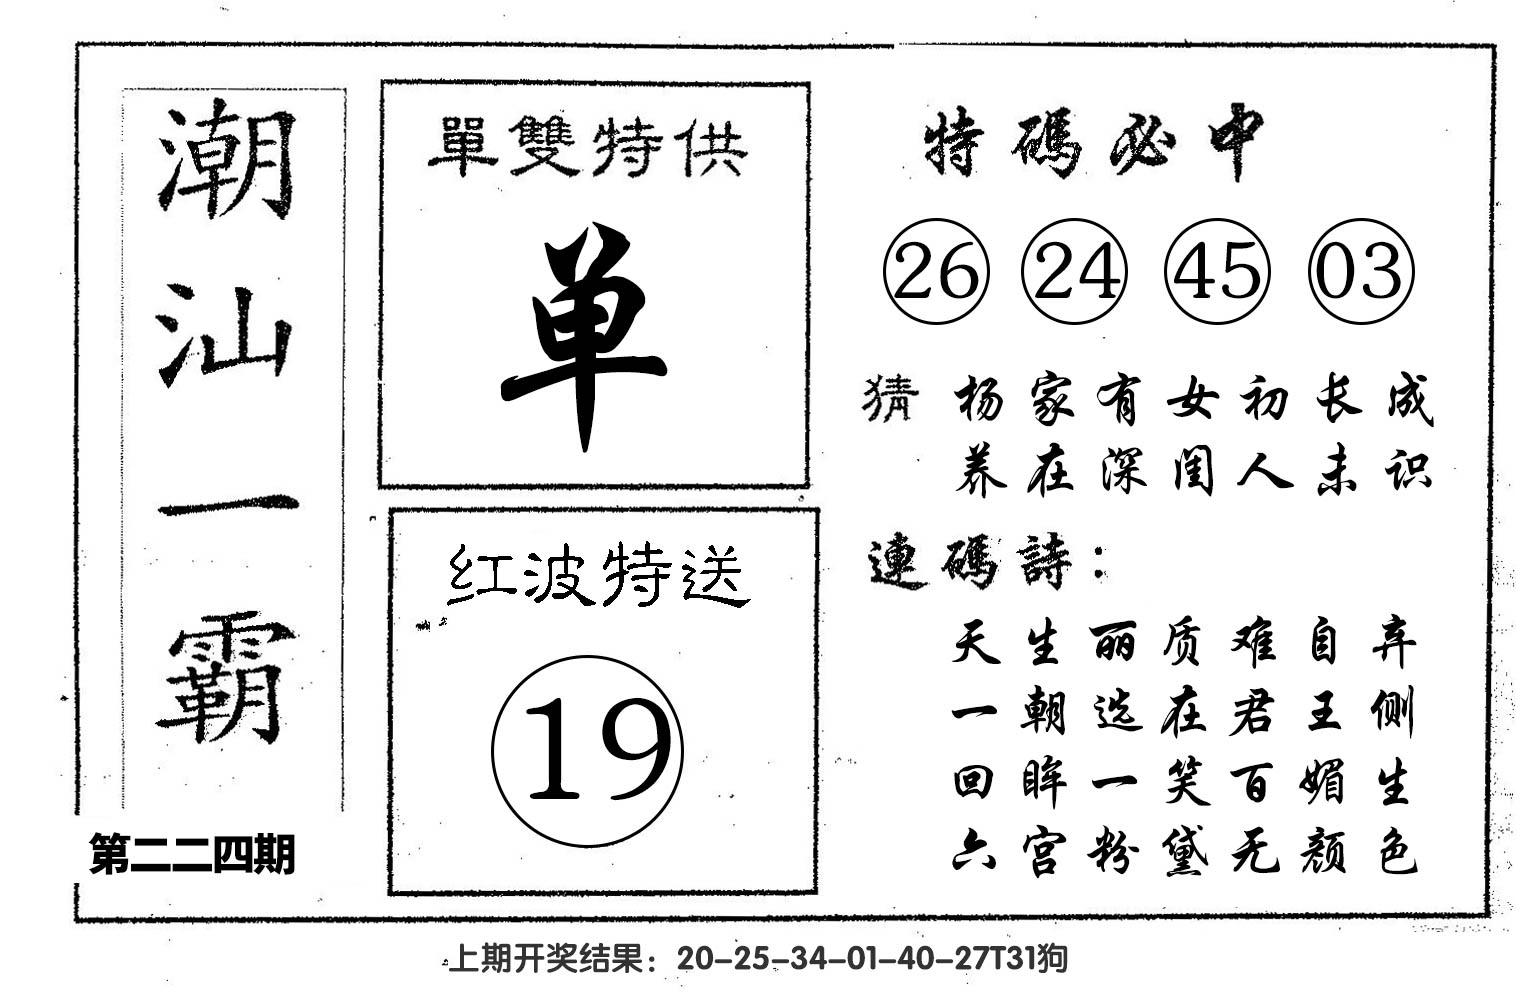 潮汕一霸
第二二四期
單雙特供
单
红波特送
19
特碼必中
26 24 45 03
猜 杨家有女初长成
养在深闺人未识
連碼詩：
天生丽质难自弃
一朝选在君王侧
回眸一笑百媚生
六宫粉黛无颜色
上期开奖结果：20-25-34-01-40-27T31狗